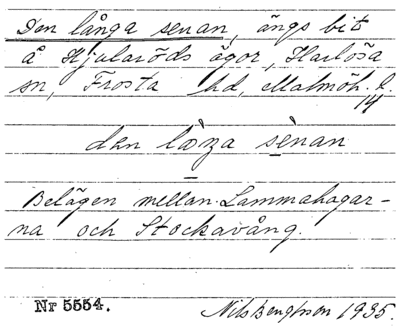 Den långa senan, ängs bit
å Hjularöds ägor, Harlösa
sn, Frosta hd, Malmöh. l.
14
den làŋa sènan
Belägen mellan Lammahagar-
na och Stockavång.
Nr 5554. Nils Bengtsson 1935.